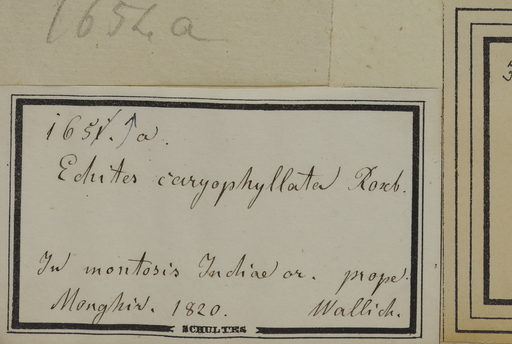 1654 a
165 a.
Echites caryophyllata Roxb.
In montosis Indiae or. prope
Monghir. 1820. Wallich.
SCHULTES